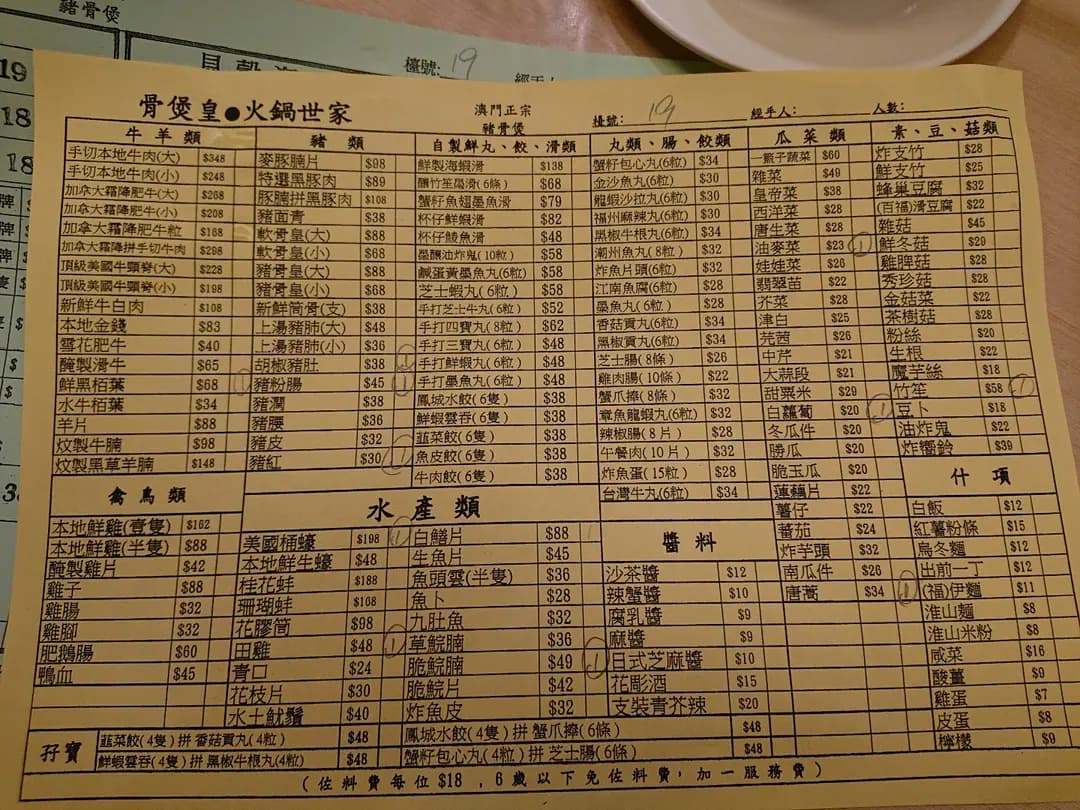 豬骨煲
19
18
18
檯號: 19
骨煲皇●火鍋世家
澳門正宗
豬骨煲
檯號: 19
經手人:
人數:
牛羊類
手切本地牛肉(大) $348
手切本地牛肉(小) $248
加拿大霜降肥牛(大) $268
加拿大霜降肥牛(小) $208
加拿大霜降肥牛粒 $168
加拿大霜降拼手切牛肉 $298
頂級美國牛頸脊(大) $228
頂級美國牛頸脊(小) $198
新鮮牛白肉 $108
本地金錢 $83
雪花肥牛 $40
醃製滑牛 $65
鮮黑栢葉 $68
水牛栢葉 $34
羊片 $88
炆製牛腩 $98
炆製黑草羊腩 $148
豬類
麥豚腩片 $98
特選黑豚肉 $89
豚腩拼黑豚肉 $108
豬面青 $38
軟骨皇(大) $88
軟骨皇(小) $68
豬骨皇(大) $88
豬骨皇(小) $68
新鮮筒骨(支) $38
上湯豬肺(大) $48
上湯豬肺(小) $36
胡椒豬肚 $38
1 豬粉腸 $45
豬潤 $38
豬腰 $36
豬皮 $32
豬紅 $30
自製鮮丸、餃、滑類
鮮製海蝦滑 $138
釀竹笙墨滑(6條) $68
蟹籽魚翅墨魚滑 $79
杯仔鮮蝦滑 $82
杯仔鯪魚滑 $48
墨釀油炸鬼(10粒) $58
鹹蛋黃墨魚丸(6粒) $58
芝士蝦丸(6粒) $58
手打芝士牛丸(6粒) $52
手打四寶丸(8粒) $62
手打三寶丸(6粒) $48
1 手打鮮蝦丸(6粒) $48
1 手打墨魚丸(6粒) $48
鳳城水餃(6隻) $38
鮮蝦雲吞(6隻) $38
韮菜餃(6隻) $38
1 魚皮餃(6隻) $38
牛肉餃(6隻) $38
丸類、腸、餃類
蟹籽包心丸(6粒) $34
金沙魚丸(6粒) $30
龍蝦沙拉丸(6粒) $30
福州麻辣丸(6粒) $30
黑椒牛根丸(6粒) $34
潮州魚丸(8粒) $32
炸魚片頭(6粒) $32
江南魚腐(6粒) $28
墨魚丸(6粒) $28
香菇貢丸(6粒) $34
黑椒貢丸(6粒) $34
芝士腸(8條) $26
雞肉腸(10條) $22
蟹爪捧(8條) $32
章魚龍蝦丸(6粒) $32
辣椒腸(8片) $28
午餐肉(10片) $32
炸魚蛋(15粒) $28
台灣牛丸(6粒) $34
瓜菜類
一籃子蔬菜 $60
雜菜 $49
皇帝菜 $38
西洋菜 $28
唐生菜 $28
油麥菜 $23
娃娃菜 $26
翡翠苗 $22
芥菜 $28
津白 $25
芫茜 $26
中芹 $21
大蒜段 $21
甜粟米 $29
白蘿蔔 $20
冬瓜件 $20
勝瓜 $20
脆玉瓜 $20
蓮藕片 $22
薯仔 $22
蕃茄 $24
炸芋頭 $32
南瓜件 $26
唐蒿 $34
素、豆、菇類
炸支竹 $28
鮮支竹 $25
蜂巢豆腐 $32
(百福)滑豆腐 $22
雜菇 $45
1 鮮冬菇 $29
雞脾菇 $28
秀珍菇 $28
金菇菜 $22
茶樹菇 $28
粉絲 $20
生根 $22
魔芋絲 $18
竹笙 $58 1
1 豆卜 $18
油炸鬼 $22
炸嚮鈴 $39
禽鳥類
本地鮮雞(壹隻) $162
本地鮮雞(半隻) $88
醃製雞片 $42
雞子 $88
雞腸 $32
雞腳 $32
肥鵝腸 $60
鴨血 $45
水產類
美國桶蠔 $198
本地鮮生蠔 $48
桂花蚌 $188
珊瑚蚌 $168
花膠筒 $98
田雞 $48
青口 $24
花枝片 $30
水土魷鬚 $40
1 白鱔片 $88
生魚片 $45
魚頭雲(半隻) $36
魚卜 $28
九肚魚 $32
1 草鯇腩 $36
脆鯇腩 $49
脆鯇片 $42
炸魚皮 $32
醬料
沙茶醬 $12
辣蟹醬 $10
腐乳醬 $9
麻醬 $9
1 日式芝麻醬 $10
花彫酒 $15
支裝青芥辣 $20
什項
白飯 $12
紅薯粉條 $15
烏冬麵 $12
出前一丁 $12
1 (福)伊麵 $11
淮山麵 $8
淮山米粉 $8
咸菜 $16
酸薑 $9
雞蛋 $7
皮蛋 $8
檸檬 $9
孖寶
韮菜餃(4隻)拼香菇貢丸(4粒) $48
鳳城水餃(4隻)拼 蟹爪捧(6條) $48
鮮蝦雲吞(4隻)拼 黑椒牛根丸(4粒) $48
蟹籽包心丸(4粒)拼 芝士腸(6條) $48
(佐料費每位$18,6歲以下免佐料費,加一服務費)